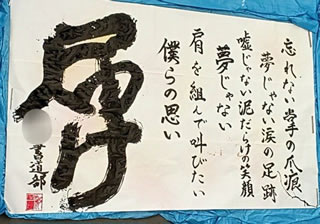 忘れない掌の爪痕
夢じゃない涙の足跡
嘘じゃない泥だらけの笑顔
夢じゃない
肩を組んで叫びたい
僕らの思い
届け
書道部